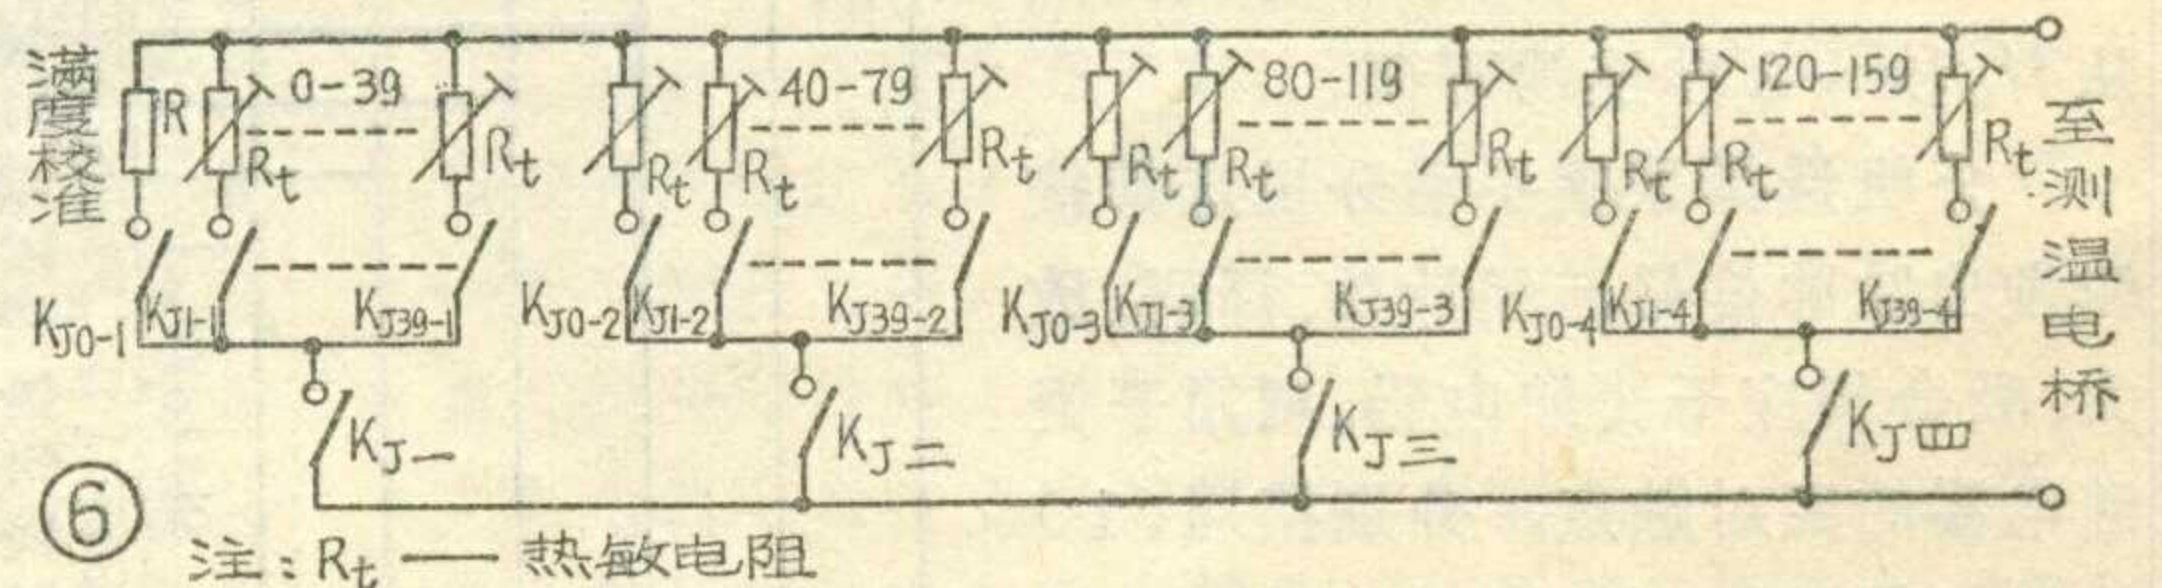 满度校准
R
Rt
0-39
Rt
Rt
Rt
40-79
Rt
Rt
Rt
80-119
Rt
Rt
Rt
120-159
Rt
至测温电桥
KJ0-1
KJ1-1
KJ39-1
KJ0-2
KJ1-2
KJ39-2
KJ0-3
KJ1-3
KJ39-3
KJ0-4
KJ1-4
KJ39-4
KJ一
KJ二
KJ三
KJ四
⑥
注：Rt —— 热敏电阻